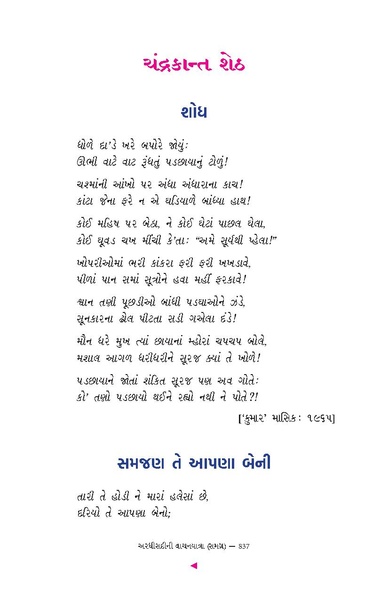 ચંદ્રકાન્ત શેઠ
શોધ
ધોળે દા'ડે ખરે બપોરે જોયું:
ઊભી વાટે વાટ રૂંધતું પડછાયાનું ટોળું!
ચશ્માંની આંખો પર અંધા અંધારાના કાચ!
કાંટા જેના ફરે ન એ ઘડિયાળે બાંધ્યા હાથ!
કોઈ મહિષ પર બેઠા, ને કોઈ ઘેટાં પાછલ ઘેલા,
કોઈ ઘૂવડ ચખ મીંચી કે'તા: “અમે સૂર્યથી પ્હેલા!”
ખોપરીઓમાં ભરી કાંકરા ફરી ફરી ખખડાવે,
પીળાં પાન સમાં સૂત્રોને હવા મહીં ફરકાવે!
શ્વાન તણી પૂછડીઓ બાંધી પડઘાઓને ઝંડે,
સૂનકારના ઢોલ પીટતા સડી ગએલા દંડે!
મૌન ધરે મુખ ત્યાં છાયાનાં મ્હોરાં ચપચપ બોલે,
મશાલ આગળ ધરીધરીને સૂરજ ક્યાં તે ખોળે!
પડછાયાને જોતાં શંકિત સૂરજ પણ અવ ગોતે:
કો' તણો પડછાયો થઈને રહ્યો નથી ને પોતે?!
['કુમાર' માસિક: ૧૯૬૫]
સમજણ તે આપણા બેની
તારી તે હોડી ને મારાં હલેસાં છે,
દરિયો તે આપણા બેનો;
અરધીસદીની વાચનયાત્રા (સમગ્ર) — 837